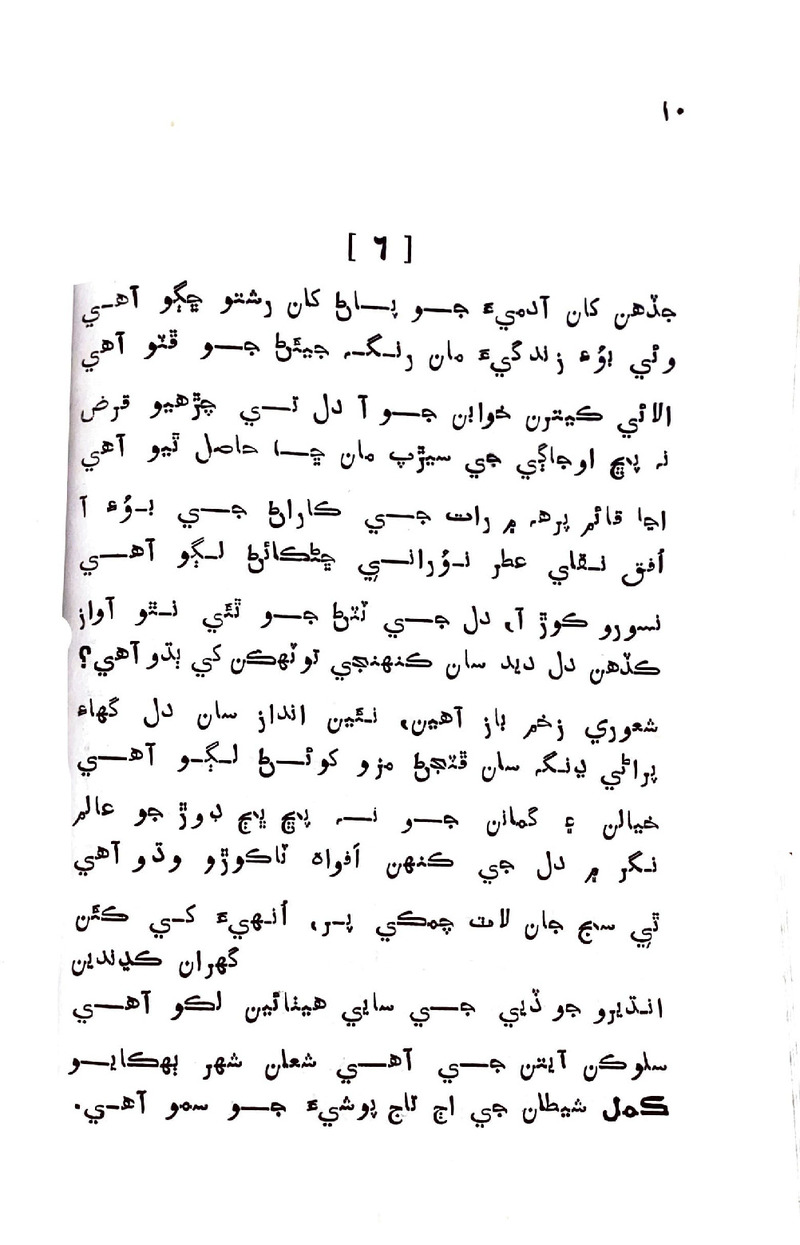 ۱۰
[ ٦ ]
جڏهن کان آدميءَ جو پاڻ کان رشتو ڇڳو آهي
وئي ٻوُءِ زندگيءَ مان رنگ جيئڻ جو ڦٽو آهي
الائي ڪيترن خوابن جو آ دل تي چڙهيو قرض
نہ پڇ اوجاڳي جي سيڙپ مان ڇا حاصل ٿيو آهي
اڃا قائم پرھ ۾ رات جي ڪاراڻ جي بوُءِ آ
اُفق نقاي عطر نوُراني ڇڻڪائڻ لڳو آهي
نسورو ڪوڙ آ، دل جي ٽٽڻ جو ٿئي نٿو آواز
ڪڏهن دل ديد سان ڪنهنجي تو ٽهڪن کي ٻڌو آهي؟
شعوري زخم باز آهين، نئين انداز سان دل گهاءِ
پراڻي ڍنگ سان ڦٽجڻ مزو کوئڻ لڳو آهي
خيالن ۽ گمانن جو نہ پڇ ڀڄ ڊوڙ جو عالم
نگر ۾ دل جي ڪنهن اُفواه ٽاڪوڙو وڌو آهي
ٿي سج جان لاٽ چمڪي پر، اُنهيءَ کي ڪئن
گهران ڪڍندين
انڌيرو جو ڏيي جي سايي هيٺائين لڪو آهي
سلوڪن آيتن جي آهي شعان شهر ٻهڪايو
ڪمل شيطان جي اڄ تاج پوشيءَ جو سمو آهي.